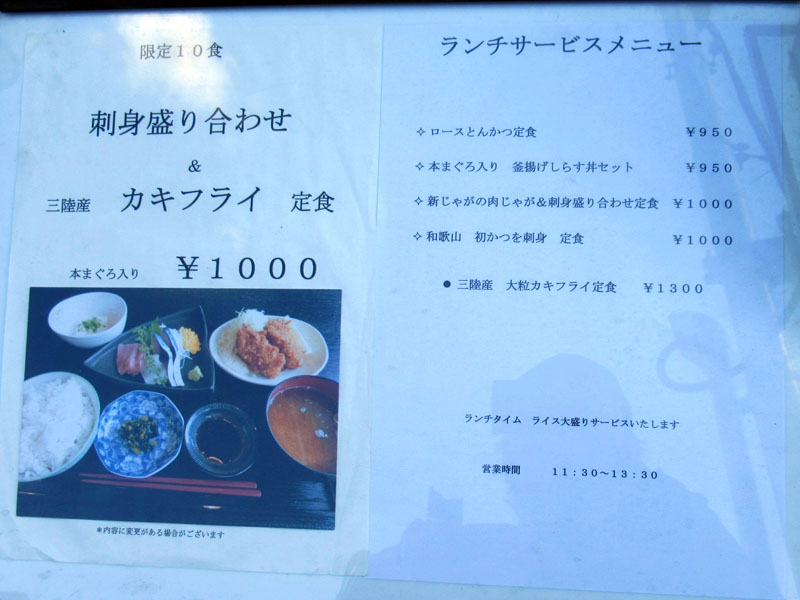 限定１０食
刺身盛り合わせ
＆
三陸産　カキフライ　定食
本まぐろ入り　￥１０００
＊内容に変更がある場合がございます
ランチサービスメニュー
✧ ロースとんかつ定食　￥９５０
✧ 本まぐろ入り　釜揚げしらす丼セット　￥９５０
✧ 新じゃがの肉じゃが＆刺身盛り合わせ定食　￥１０００
✧ 和歌山　初かつを刺身　定食　￥１０００
● 三陸産　大粒カキフライ定食　￥１３００
ランチタイム　ライス大盛りサービスいたします
営業時間　１１：３０～１３：３０